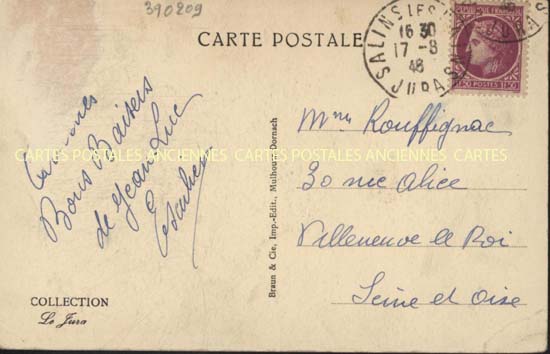 390209
CARTE POSTALE
SALINS LES
16 30
17 - 8
46
JURA
POSTES
Bons Baisers
de Jean Luc
CARTES POSTALES ANCIENNES CARTES POSTALES ANCIENNES CARTES
Braun & Cie, Imp.-Edit., Mulhouse-Dornach
Mme Rouffignac
30 rue Alice
Villeneuve le Roi
Seine et Oise
COLLECTION
Le Jura